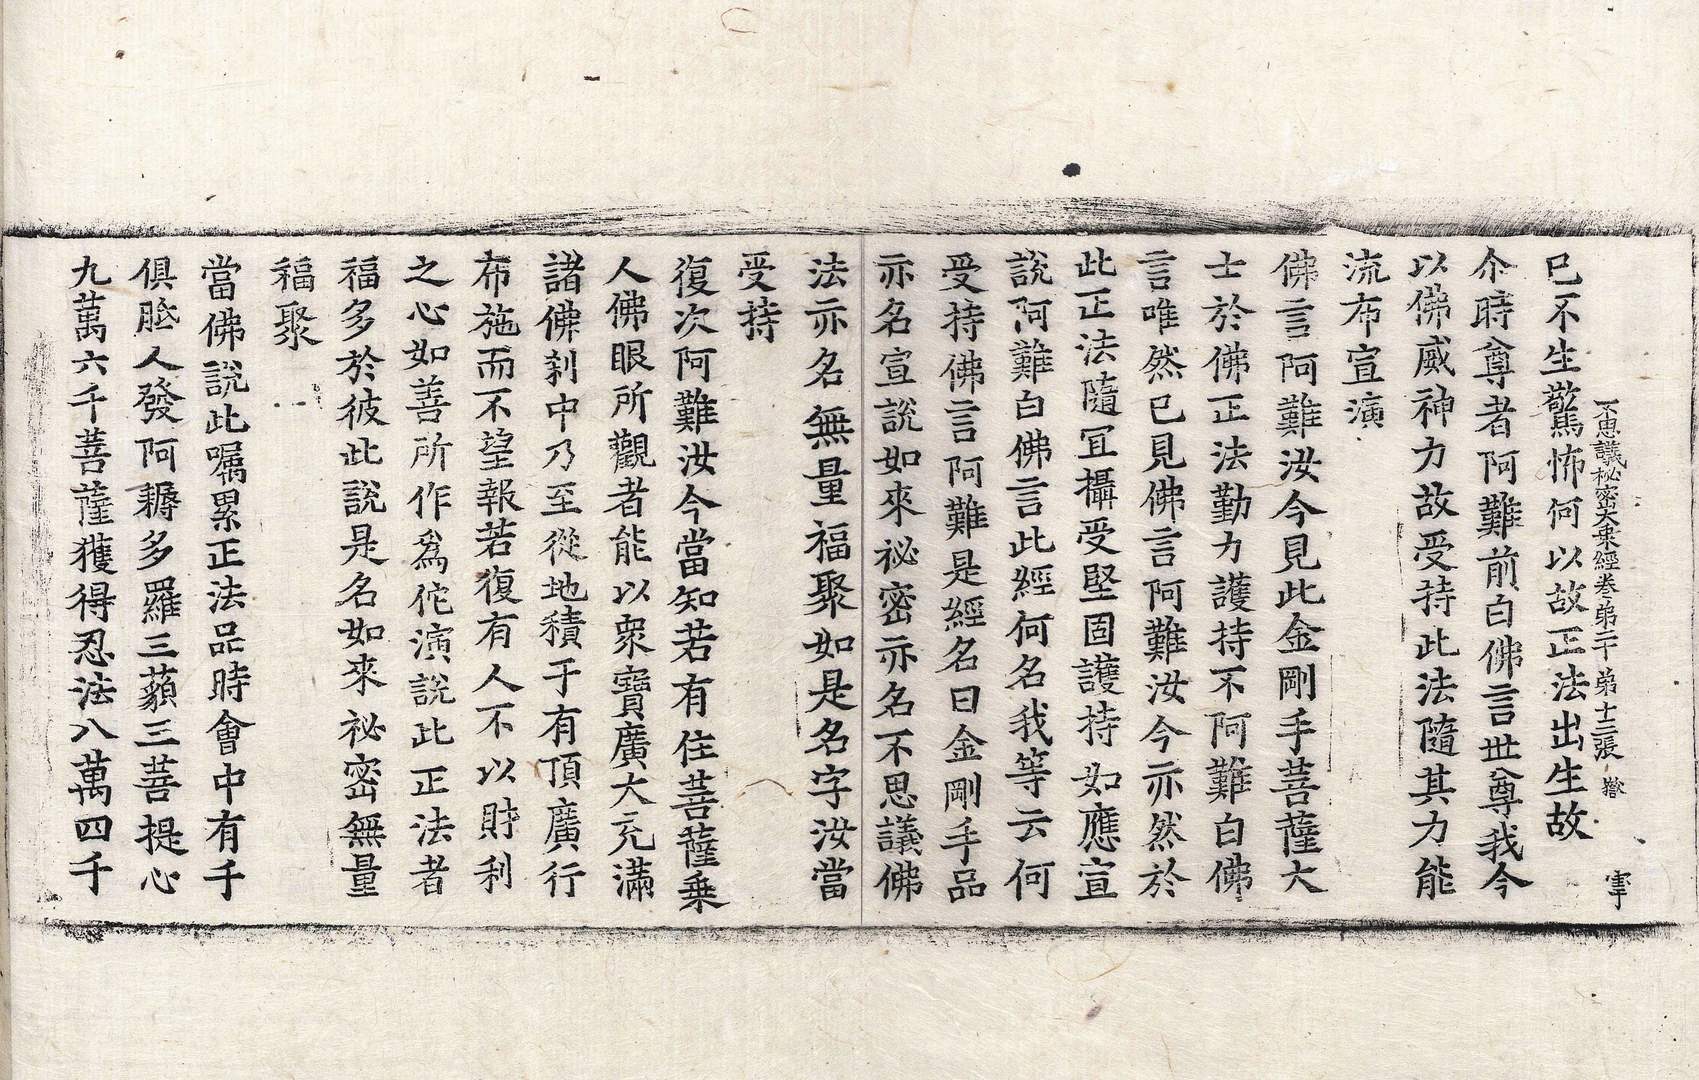 不思議秘密大乗經卷苐二十 苐十三張 嶽 寕
已不生驚怖何以故正法出生故
尒時尊者阿難前白佛言世尊我今
以佛威神力故受持此法隨其力能
流布宣演
佛言阿難汝今見此金剛手菩薩大
士於佛正法勤力護持不阿難白佛
言唯然已見佛言阿難汝今亦然於
此正法隨冝攝受堅固護持如應宣
說阿難白佛言此經何名我等云何
受持佛言阿難是經名曰金剛手品
亦名宣說如來祕密亦名不思議佛
法亦名無量福聚如是名字汝當
受持
復次阿難汝今當知若有住菩薩乗
人佛眼所觀者能以衆寶廣大充滿
諸佛刹中乃至從地積于有頂廣行
布施而不望報若復有人不以財利
之心如善所作爲佗演說此正法者
福多於彼此說是名如來祕密無量
福聚
當佛說此囑累正法品時會中有千
俱胝人發阿耨多羅三藐三菩提心
九萬六千菩薩獲得忍法八萬四千